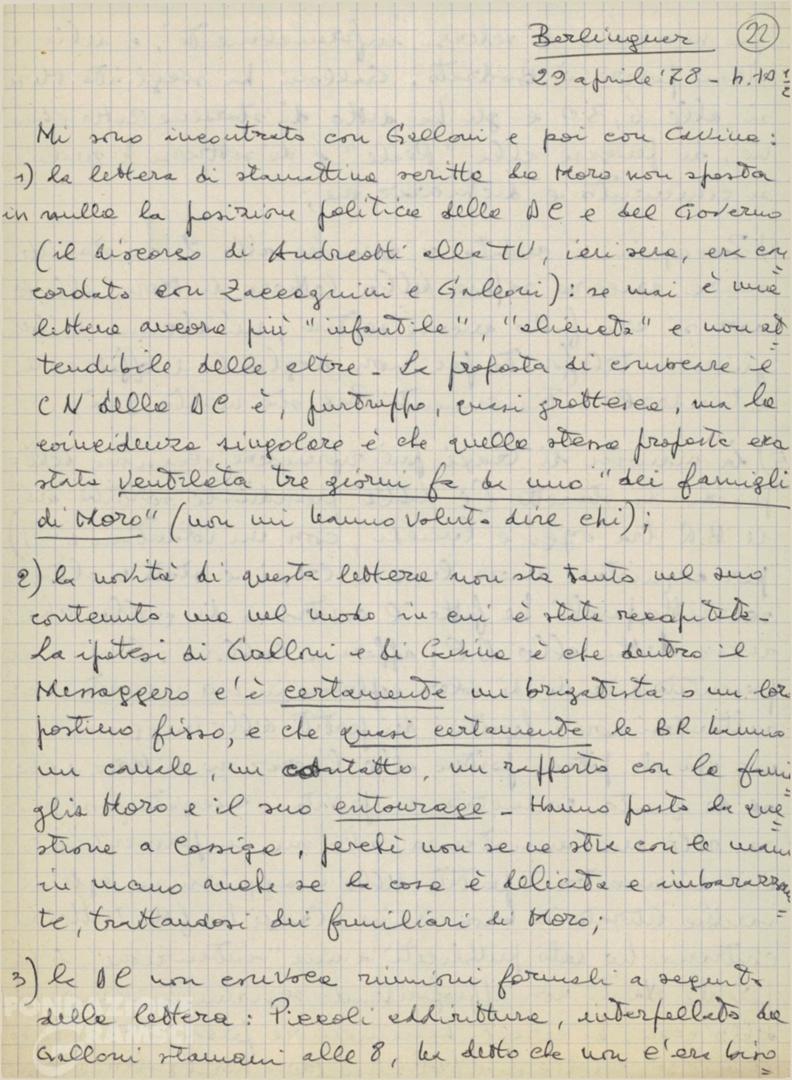 Berlinguer 22
29 aprile '78 - h. 10 1/2
Mi sono incontrato con Galloni e poi con Cavina:
1) la lettera di stamattina scritta da Moro non sposta
in nulla la posizione politica della DC e del Governo
(il discorso di Andreotti alla TV, ieri sera, era con
cordato con Zaccagnini e Galloni): se mai è una
lettera ancora più "infantile", "alienata" e non at=
tendibile delle altre - La proposta di convocare il
CN della DC è, purtroppo, quasi grottesca, ma la
coincidenza singolare è che quella stessa proposta era
stata ventilata tre giorni fa da uno "dei famigli
di Moro" (non mi hanno voluto dire chi);
2) la novità di questa lettera non sta tanto nel suo
contenuto ma nel modo in cui è stata recapitata -
La ipotesi di Galloni e di Cavina è che dentro il
Messaggero c'è certamente un brigatista o un lor
postino fisso, e che quasi certamente le BR hanno
un canale, un contatto, un rapporto con la fami=
glia Moro e il suo entourage - Hanno posto la que=
stione a Cossiga, perchè non se ne stia con le mani
in mano anche se la cosa è delicata e imbarazzan=
te, trattandosi dei familiari di Moro;
3) la DC non convoca riunioni formali a seguito
della lettera: Piccoli addirittura, interpellato da
Galloni stamani alle 8, ha detto che non c'era biso=